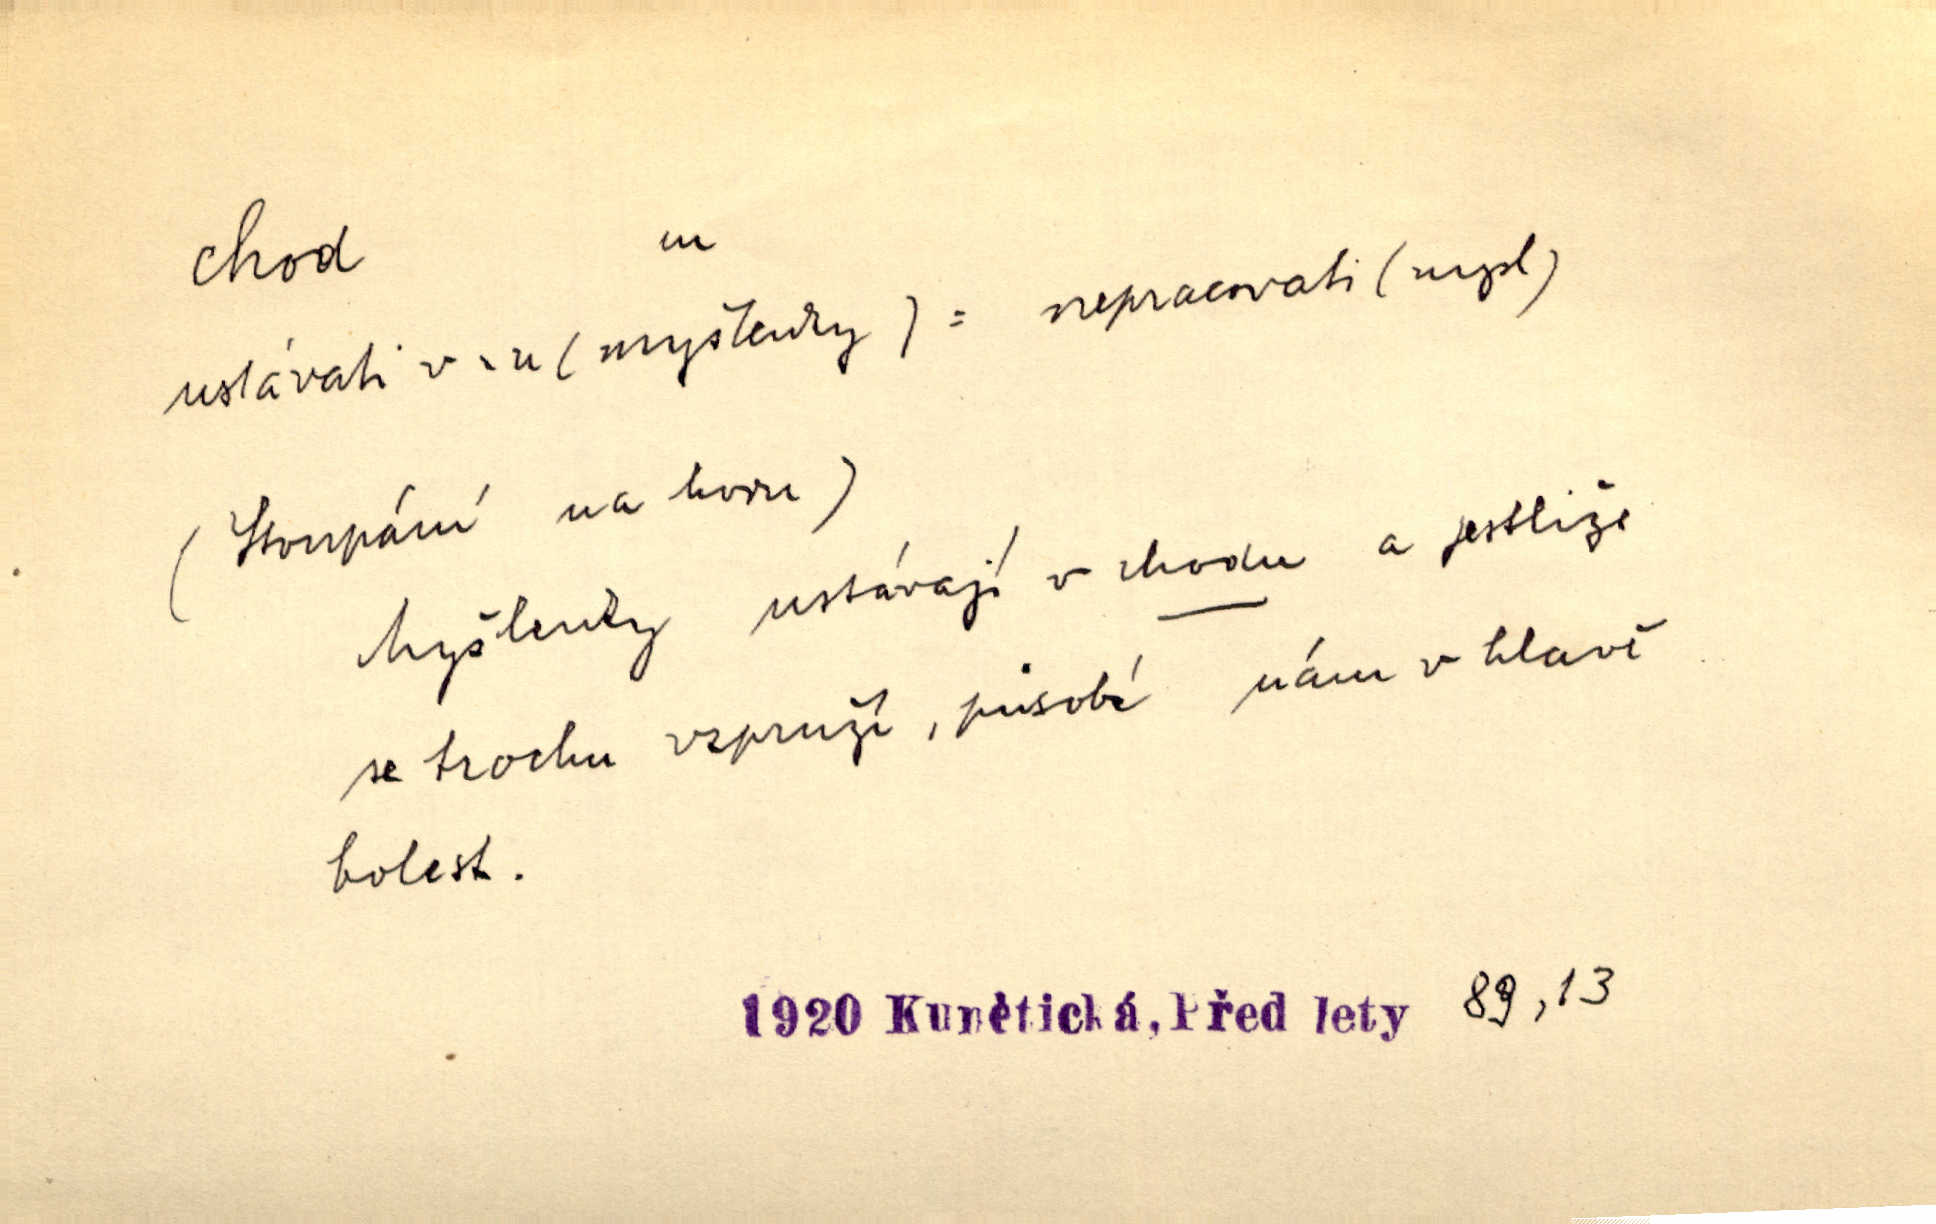 chod m
ustávati v . u (myšlenky) = nepracovati (mysl)
(Stoupání na horu)
Myšlenky ustávají v chodu a jestliže
se trochu vzpruží, působí nám v hlavě
bolest.
1920 Kunětická, Před lety 89,13